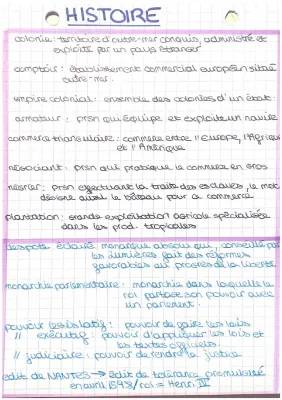 HISTOIRE
colonie: territoire d'outre-mer conquis, administré et
exploité par un pays étranger
comptoir: établissement commercial européen situé
outre-mer.
empire colonial: ensemble des colonies d'un état.
armateur: prsn qui équipe et exploite un navire
commerce triangulaire: commerce entre l'Europe, l'Afrique
et l'Amérique
négociant: prsn qui pratique le commerce en gros
négrier: prsn effectuant la traite des esclaves, le mot
désigne aussi le bateau pour ce commerce
plantation: grande exploitation agricole spécialisée
dans les prod. tropicales
despote éclairé: monarque absolu qui, conseillé par
les lumières fait des réformes
favorables au progrès de la liberté
monarchie parlementaire: monarchie dans laquelle le
roi partage son pouvoir avec
un parlement.
pouvoir législatif: pouvoir de faire les lois
// exécutif: pouvoir d'appliquer les lois et
les textes officiels.
// judiciaire: pouvoir de rendre la justice
edit de NANTES → édit de tolérance promulgué
en avril 1598 / roi = Henri IV